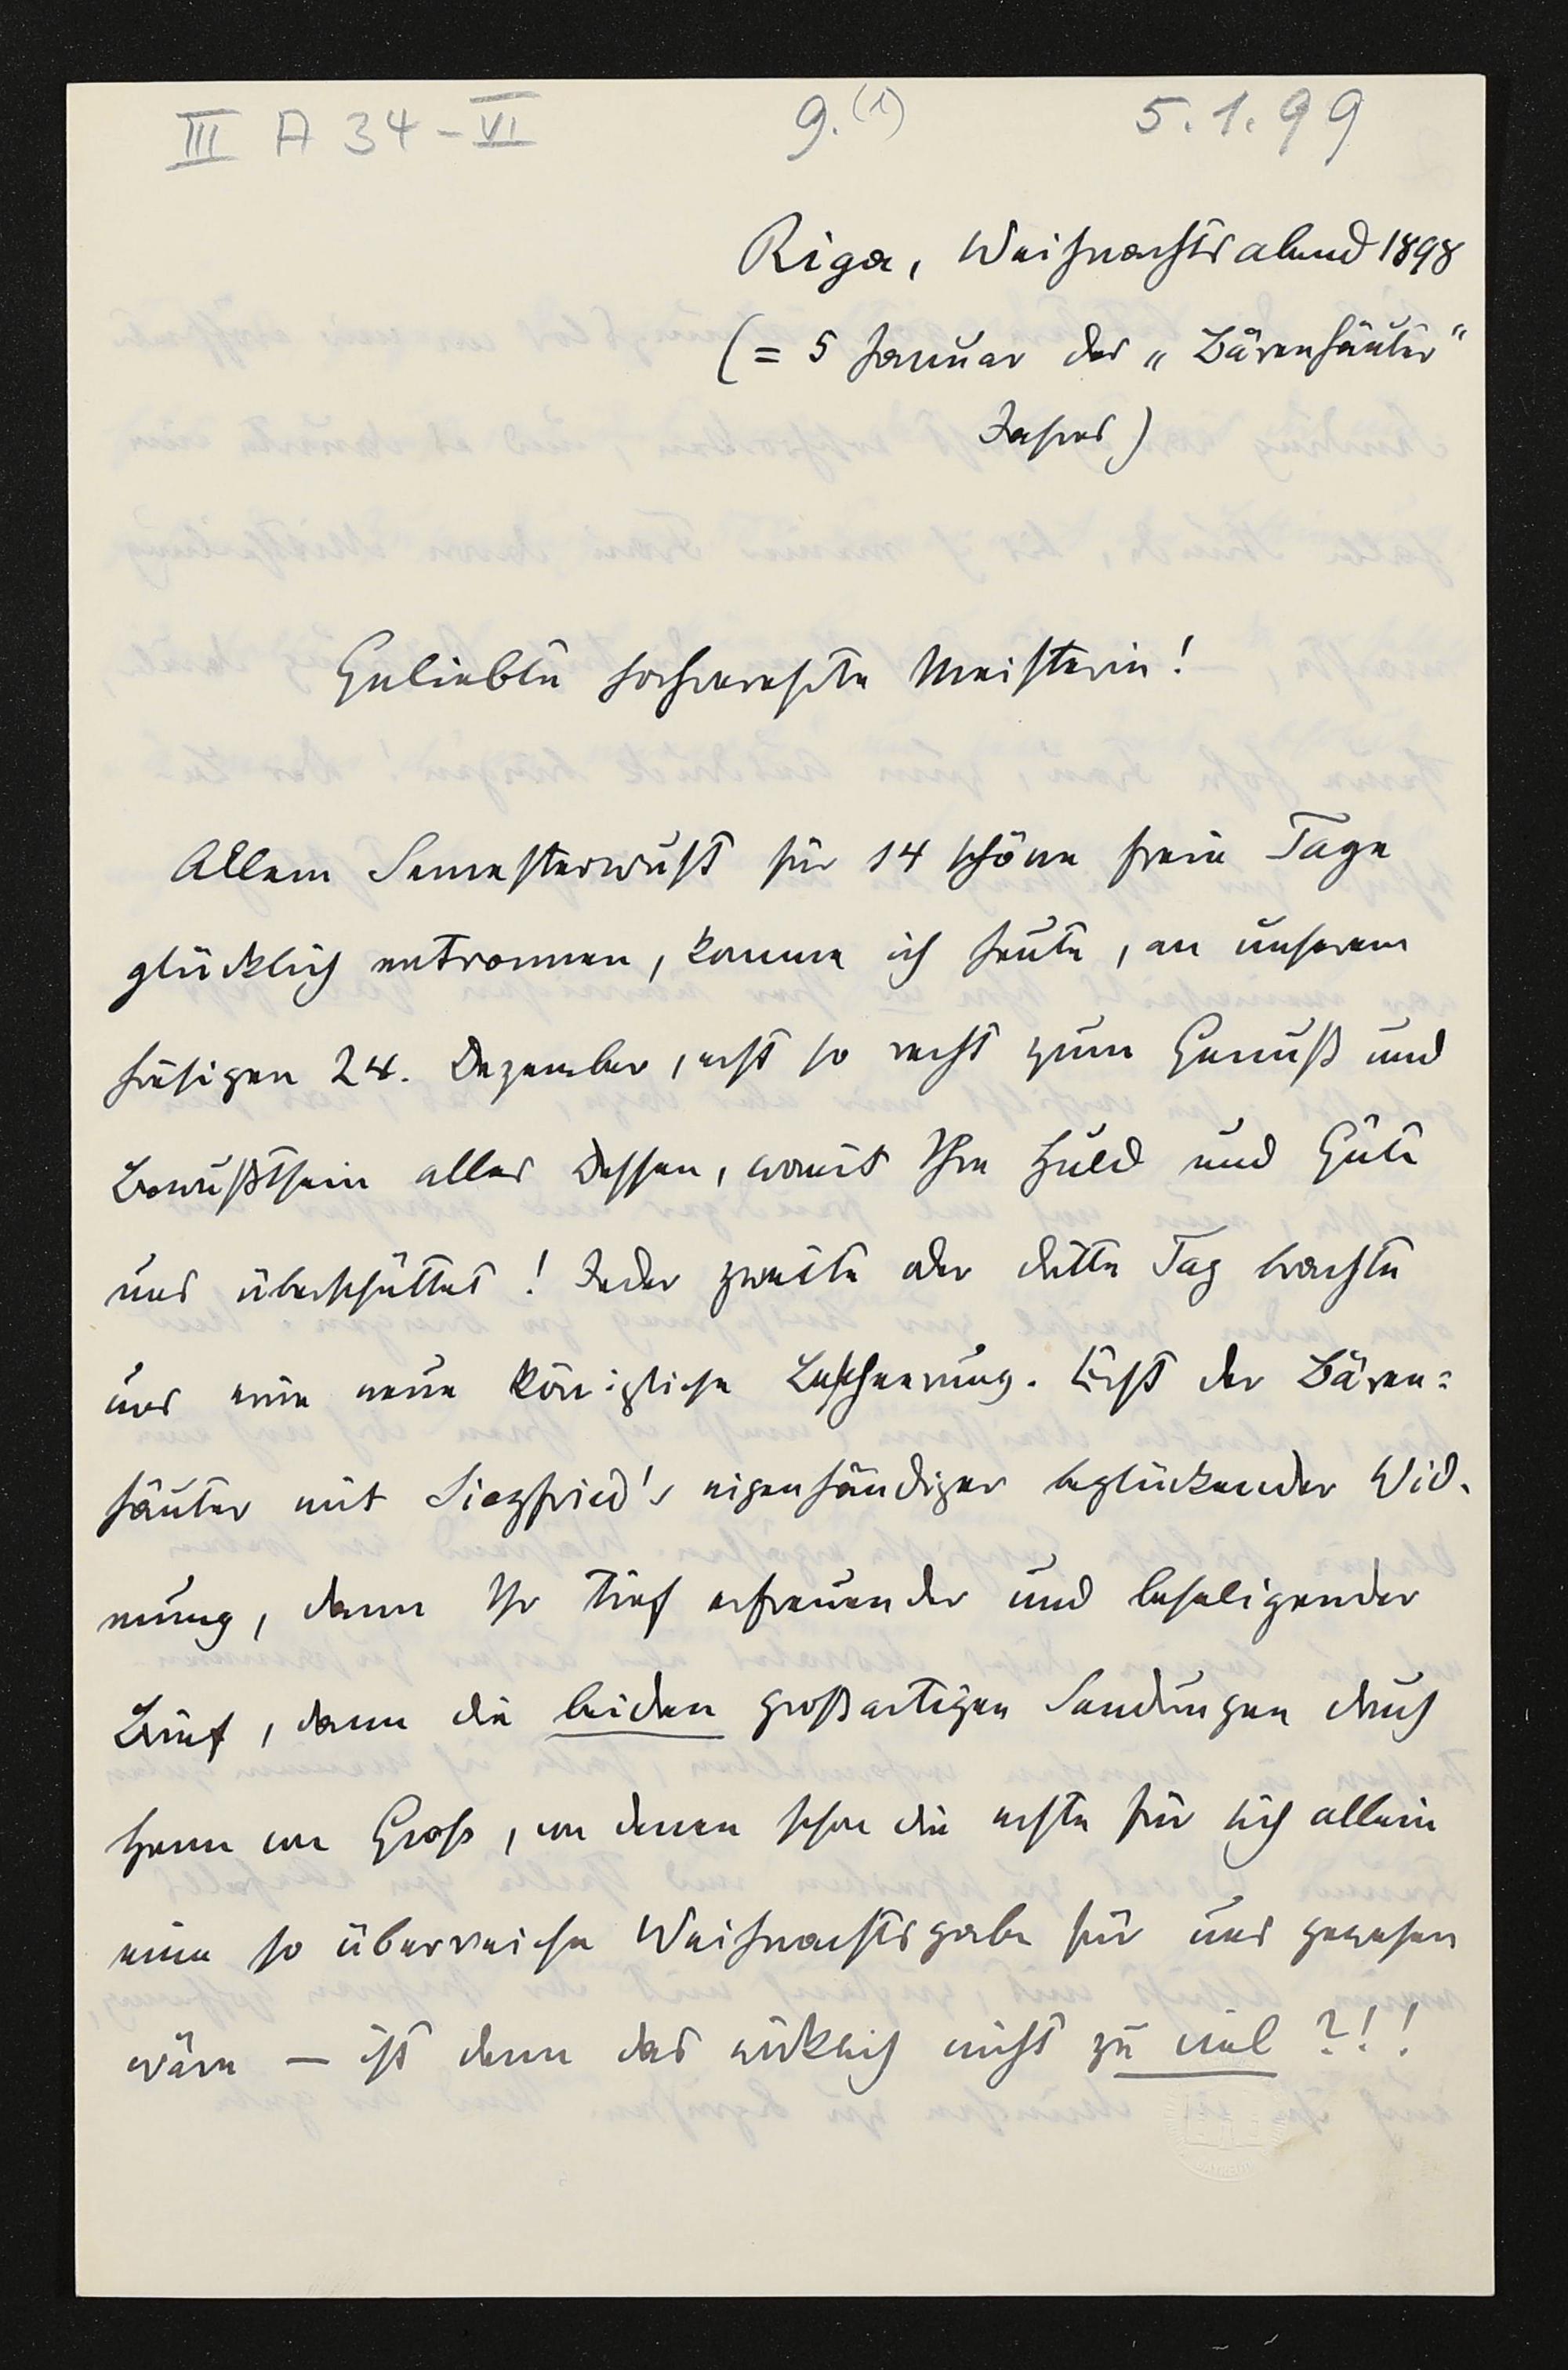 III A 34-VI 9.(1) 5.1.99
Riga, Weihnachtsabend 1898
(= 5 Januar des „Bärenhäuter“
Jahres)
Geliebte hochverehrte Meisterin!
Allem Semesterwust für 14 schöne freie Tage
glücklich entronnen, komme ich heute, an unserem
hiesigen 24. Dezember, erst so recht zum Genuß und
Bewußtsein alles Dessen, womit Ihre Huld und Güte
uns überschüttet! Jeder zweite oder dritte Tag brachte
uns eine neue königliche Bescheerung. Erst der Bären=
häuter mit Siegfried's eigenhändiger beglückender Wid-
mung, dann Ihr tief erfreuender und beseligender
Brief, dann die beiden großartigen Sendungen durch
Herrn von Groß, von denen schon die erste für sich allein
eine so überreiche Weihnachtsgabe für uns gewesen
wäre — ist denn das wirklich nicht zu viel ?!!